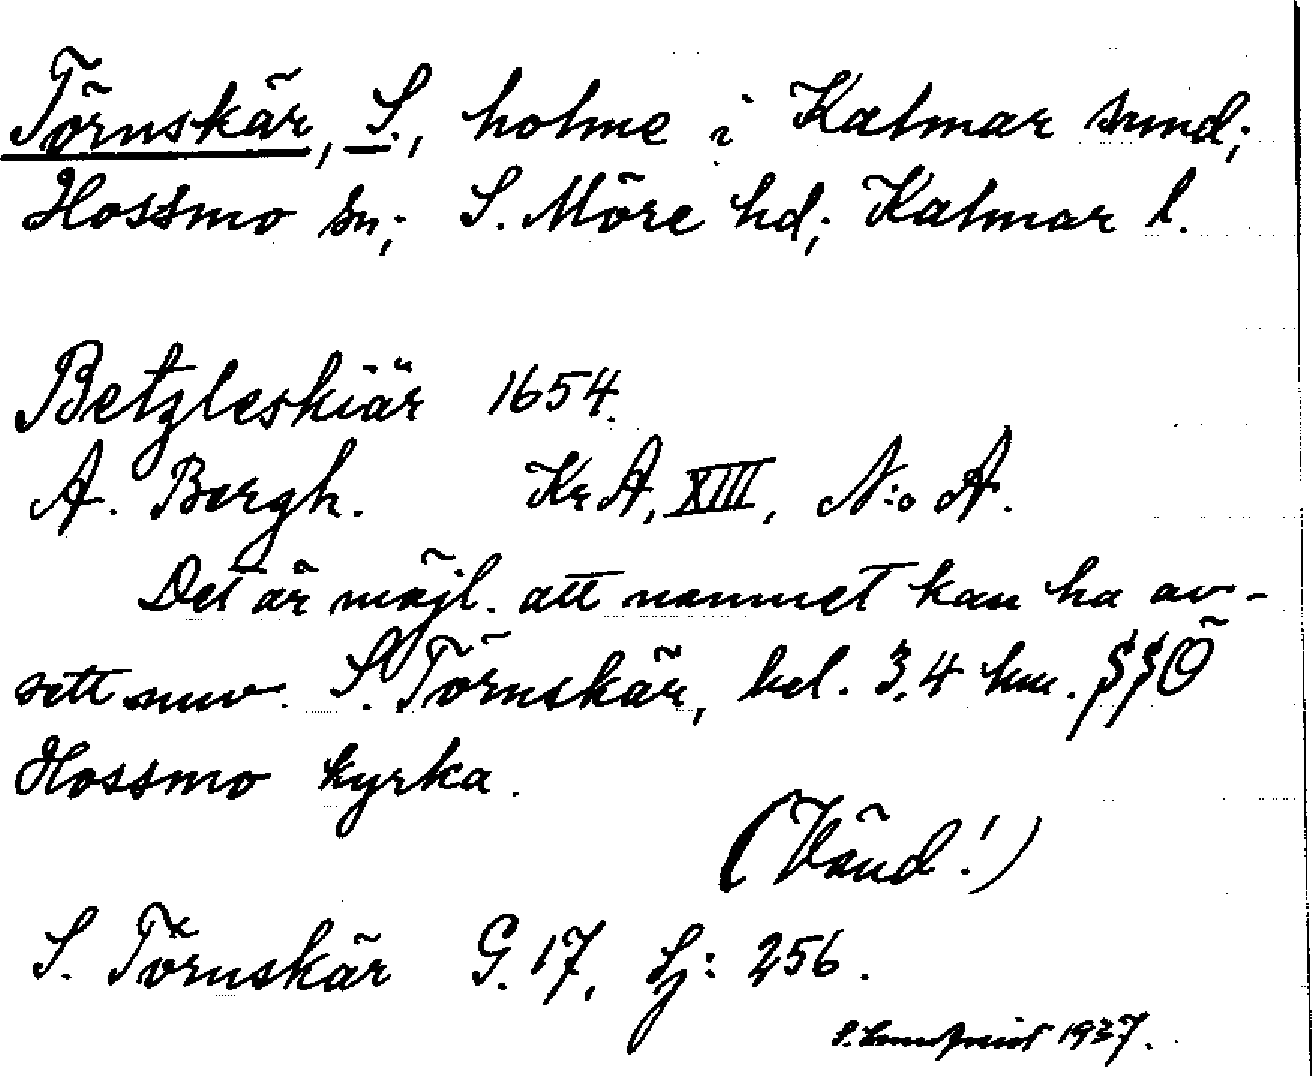 Törnskär, S., holme i Kalmar sund;
Hossmo sn; S. Möre hd; Kalmar l.
Betzleskiär 1654.
A. Bergh. KrA, XIII, N:o A.
Det är möjl. att namnet kan ha av-
sett nuv. S. Törnskär, bel. 3,4 km. SSÖ
Hossmo kyrka.
(Vänd!)
S. Törnskär G. 17, Lj: 256.
1937.